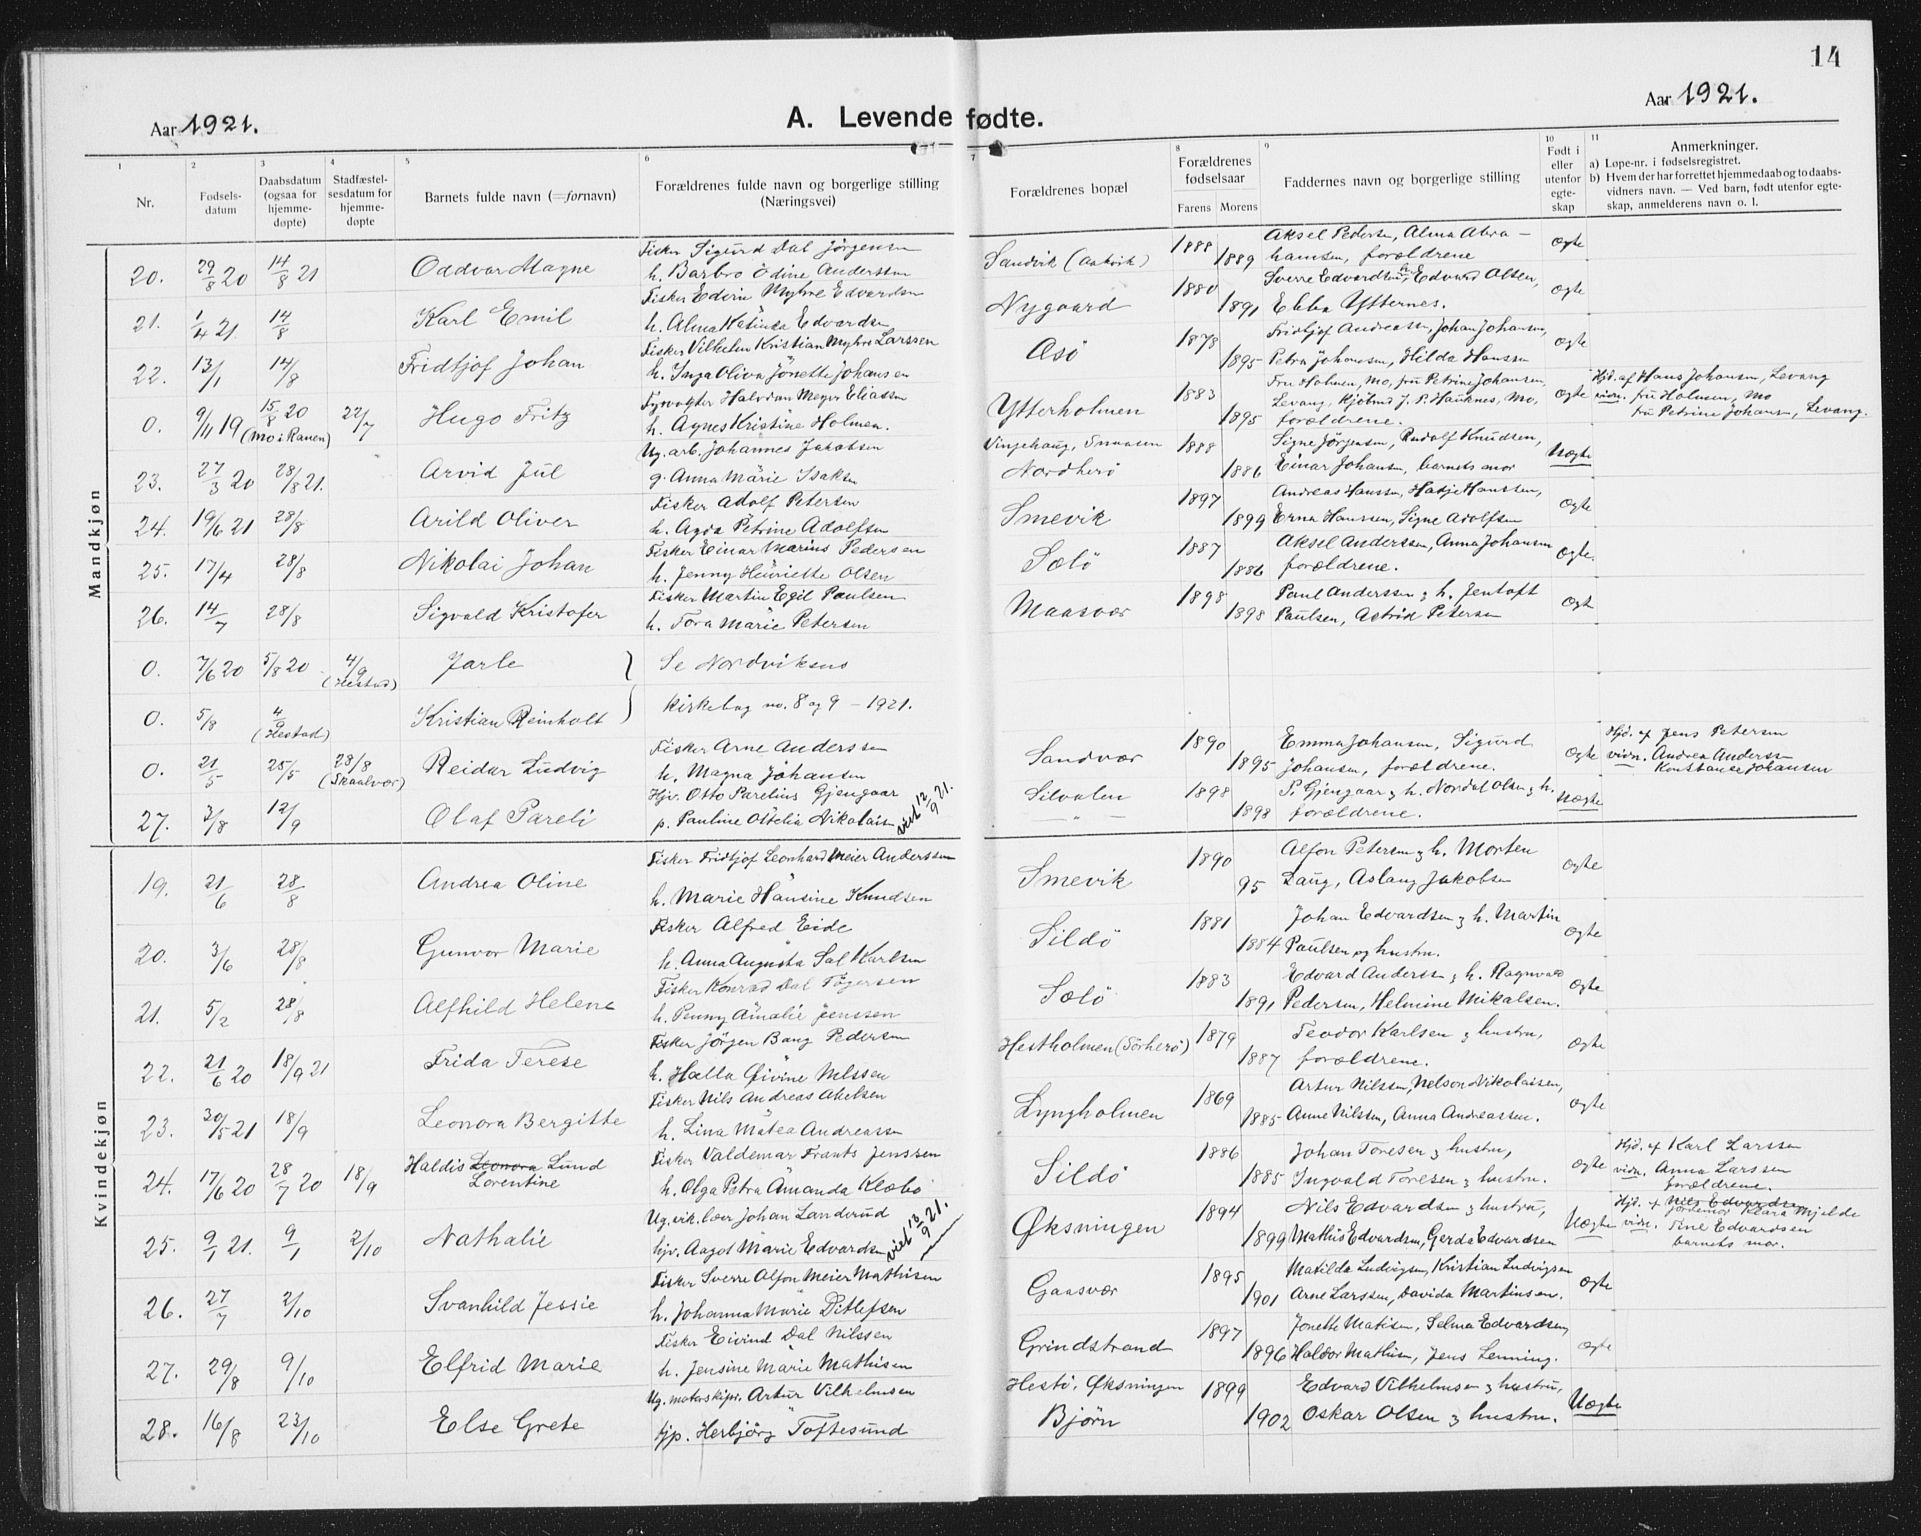 14
Aar 1921.
A. Levende fødte.
Aar 1921.
1
Nr.
2
Fødsels-
datum
3
Daabsdatum
(ogsaa for
hjemme-
døpte)
4
Stadfæstel-
sesdatum for
hjemme-
døpte
5
Barnets fulde navn (=fornavn)
6
Forældrenes fulde navn og borgerlige stilling
(Næringsvei)
7
Forældrenes bopæl
8
Forældrenes
fødselsaar
Farens Morens
9
Faddernes navn og borgerlige stilling
10
Født i
eller
utenfor
egte-
skap
11
Anmerkninger.
a) Løpe-nr. i fødselsregistret.
b) Hvem der har forrettet hjemmedaab og to daabs-
vidners navn. — Ved barn, født utenfor egte-
skap, anmelderens navn o. l.
Mandkjøn
20. 29/8 20 14/8 21 Oddvar Magne
Fisker Sigurd Dal Jørgensen
h. Barbro Odine Anderssen
Sandvik (Aakvik) 1888 1889
Aksel Pedersen, Alma Abra-
hansen, forældrene
Ogte
21. 1/4 21. 14/8 Karl Emil
Fisker Edvin Myhre Edvardsen
h. Alma Katinka Edvardsen
Nygaard 1880 1891
Sverre Edvardsen, Edvard Olsen,
Ebba Ytternes.
Ogte
22. 13/1 14/8 Fridtjof Johan
Fisker Vilhelm Kristian Myhre Larssen
h. Inga Oliva Jonette Johansen
Asö 1878 1895
Fridtjof Andreassen, Johan Johansen,
Petra Johansen, Hilda Hanssen
Ogte
0. 9/11 19 15/8 20 (Mo i Ranen) 22/7 Hugo Fritz
Fyrvogter Halvdan Meyer Eliassen
h. Agnes Kristine Holmen.
Ytterholmen 1883 1895
Fru Holmen, Mo, fru Petrine Johansen,
Levang, Kjøbmd J. P. Hauknes, Mo,
forældrene.
Ogte
Hjd. af Hans Johansen, Levang
vidn. fru Holmen, Mo
fru Petrine Johansen, Levang.
23. 27/3 20 28/8 21. Arvid Jul
Ug. arb. Johannes Jakobsen
g. Anna Marie Isaksen
Vinjehaug, Snaasen
Nordherö 1888 1886
Signe Jørgensen, Rudolf Knudsen,
Einar Johansen, barnets mor
Uægte
24. 19/6 21 28/8 Arild Oliver
Fisker Adolf Petersen
h. Agda Petrine Adolfsen
Smevik 1897 1899
Andreas Hanssen, Hatje Hanssen,
Erna Hanssen, Signe Adolfsen
Ogte
25. 17/4 28/8 Nikolai Johan
Fisker Einar Marius Pedersen
h. Jenny Henriette Olsen
Sælö 1887 1886
Aksel Anderssen, Anna Johansen
forældrene.
Ogte.
26. 14/7 28/8 Sigvald Kristofer
Fisker Martin Egil Paulsen
h. Tora Marie Petersen
Maasvær 1898 1898
Paul Anderssen & h. Jentoft
Paulsen, Astrid Petersen
Ogte
0. 7/6 20 5/8 20 4/9 (Hestad) Jarle
Se Nordviksns
0. 5/8 4/9 (Hestad) Kristian Reinholt
kirkebog no. 8 og 9 – 1921.
0. 21/5 25/5 28/8 (Skaalvær) Reidar Ludvig
Fisker Arne Anderssen
h. Magna Johansen
Sandvær 1890 1895
Emma Johansen, Sigurd
Johansen, forældrene.
Ogte
Hjd. af Jens Petersen
vidn. Andrea Anderss
Konstanse Johansen
27. 3/8 12/9 Olaf Pareli
Hjv. Otto Parelius Gjengaar
p. Pauline Ottelia Nikolaisen viet 12/9 21.
Silvalen 1898 1898
P. Gjengaar & h. Nordal Olsen & h.
forældrene.
Uægte
Kvindekjøn
19. 21/6 28/8 Andrea Oline
Fisker Fridtjof Leonhard Meier Anderssen
h. Marie Hansine Knudsen
Smevik 1890 95
Alfon Petersen & h. Morten
Laug, Aslaug Jakobsen
Ogte
20. 3/6 28/8 Gunvor Marie
Fisker Alfred Eide
h. Anna Augusta Sal Karlsen
Sildö 1881 1884
Johan Edvardsen & h. Martin
Paulsen og hustru.
Ogte
21. 5/2 28/8 Alfhild Helene
Fisker Konrad Dal Tögersen
h. Penny Amalie Jenssen
Sælö 1883 1891
Edvard Anderssen & h. Ragnvald
Pedersen, Helmine Mikalsen.
Ogte
22. 21/6 20 18/9 21 Frida Terese
Fisker Jörgen Bang Pedersen
h. Halla Øivine Nilssen
Hestholmen (Sörherö) 1879 1887
Teodor Karlsen & hustru,
forældrene.
Ogte
23. 30/5 21 18/9 Leonora Bergitte
Fisker Nils Andreas Akelsen
h. Lina Matea Andreassen
Lyngholmen 1869 1885
Artur Nilssen, Nelson Nikolaisen,
Anne Nilssen, Anna Andreassen.
Ogte
24. 17/6 20 28/7 20 18/9 Haldis Leonora Lund
Lorentine
Fisker Valdemar Frants Jenssen
h. Olga Petra Amanda Klæbo
Sildö 1886 1885
Johan Toresen & hustru,
Ingvald Toresen & hustru.
Ogte
Hjd. af Karl Larssen
vidn. Anna Larssen
forældrene.
25. 9/1 21. 9/1 2/10 Nathalie
Ug. vik. lær Johan Landerud
hjv. Aagot Marie Edvardsen viet 13/9 21.
Øksningen 1894 1899
Nils Edvardsen & hustru,
Mathis Edvardsen, Gerda Edvardsen
Uægte
Hjd. af Nils Edvardsen
jordemor Klara Mjelde
vidn. Tine Edvardsen
barnets mor.
26. 27/7 2/10 Svanhild Jessie
Fisker Sverre Alfon Meier Mathisen
h. Johanna Marie Ditlefsen
Gaasvær 1895 1901
Matilda Ludvigsen, Kristian Ludvigsen
Arne Larssen, Davida Martinsen.
Ogte
27. 29/8 9/10 Elfrid Marie
Fisker Eivind Dal Nilssen
h. Jensine Marie Mathisen
Grindstrand 1897 1896
Jonette Matisen, Selma Edvardsen,
Haldor Mathisen, Jens Lenning.
Ogte
28. 16/8 23/10 Else Grete
Ug. motorskipr. Artur Vilhelmsen
tjp. Herbjörg Toftesund
Hestö, Øksningen
Bjørn 1899 1902
Edvard Vilhelmsen & hustru,
Oskar Olsen & hustru.
Uægte